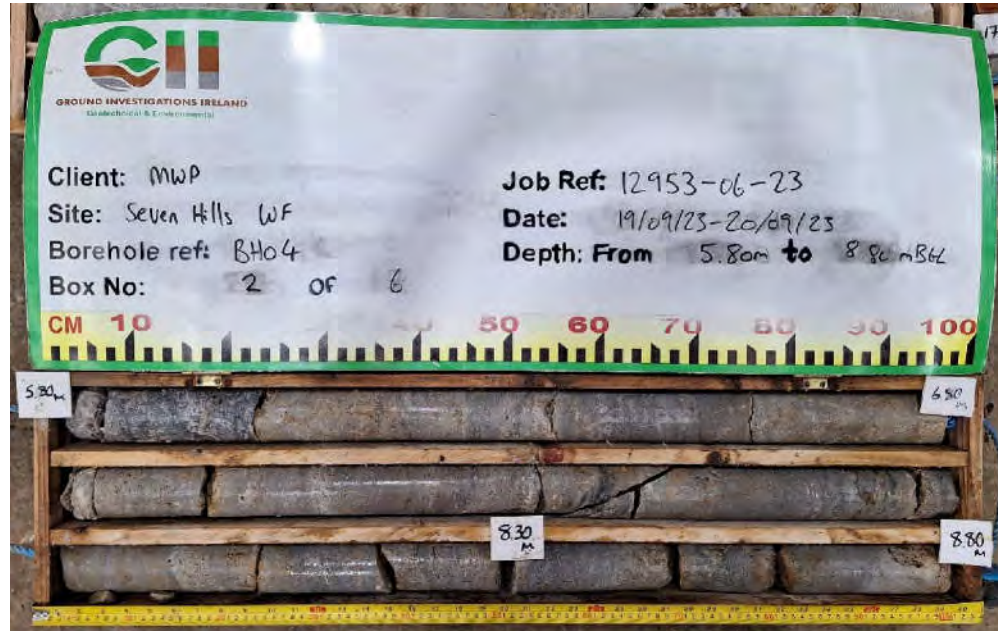 GII
GROUND INVESTIGATIONS IRELAND
Geotechnical & Environmental
17
Client: MWP
Site: Seven Hills WF
Borehole ref: BH04
Box No: 2 OF 6
Job Ref: 12953-06-23
Date: 19/09/23-20/09/23
Depth: From 5.80m to 8.80 mBGL
CM 10 40 50 60 70 80 90 100
5.80 M
6.80 M
8.30 M
8.80 M